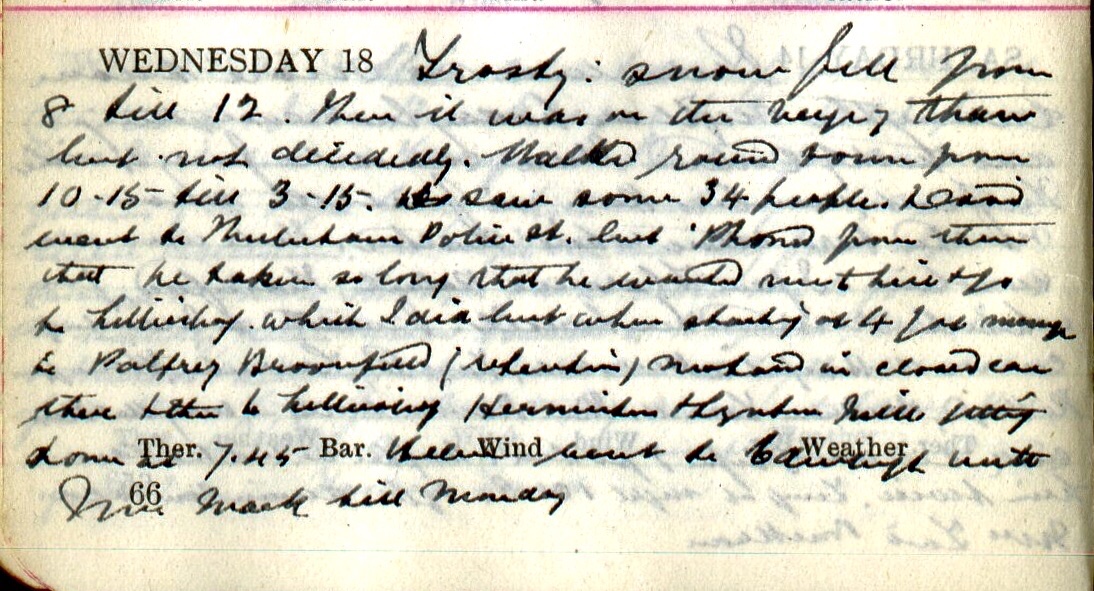 WEDNESDAY 18 Frosty: snow fell from
8 till 12. Then it was on the verge of thaw
but not decidedly. Walked round town from
10-15 till 3-15. saw some 34 people. David
went to Police St. but 'Phoned from there
that he taken so long that he would not hire & go
to Hillierhay. which I did but when starting at 4 I got message
to Palfrey Broomfield (retention) Motored in closed car
there & then to Herniston & Lynton Mill getting
home at 7.45 Ther. Bar. Wind Weather
Helen went to Edinburgh with
Mrs. Mack till Monday
66